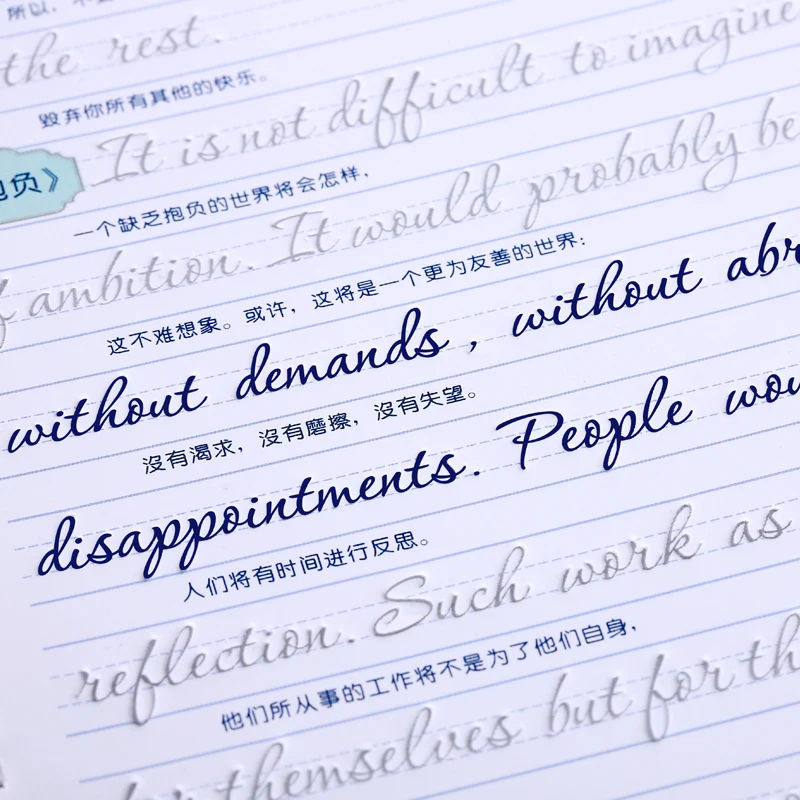 所以，不
the rest.
毁弃你所有其他的快乐。
It is not difficult to imagine
抱负》
一个缺乏抱负的世界将会怎样，
f ambition. It would probably be
这不难想象。或许，这将是一个更为友善的世界：
without demands , without abr
沒有渴求，沒有磨擦，沒有失望。
disappointments. People wou
人们将有时间进行反思。
reflection. Such work as
他们所从事的工作将不是为了他们自身，
for themselves but for th